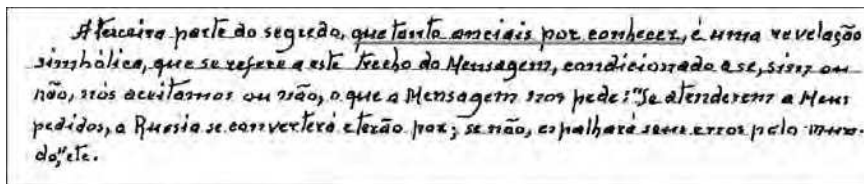 A terceira parte do segredo, que tanto anciais por conhecer, é uma revelação
simbólica, que se refere a este trecho da Mensagem, condicionado a se, sim ou
não, nós aceitamos ou não, o que a Mensagem nos pede: "Se atenderem a Meus
pedidos, a Russia se converterá e terão paz; se não, espalhará seus erros pelo mun-
do," etc.